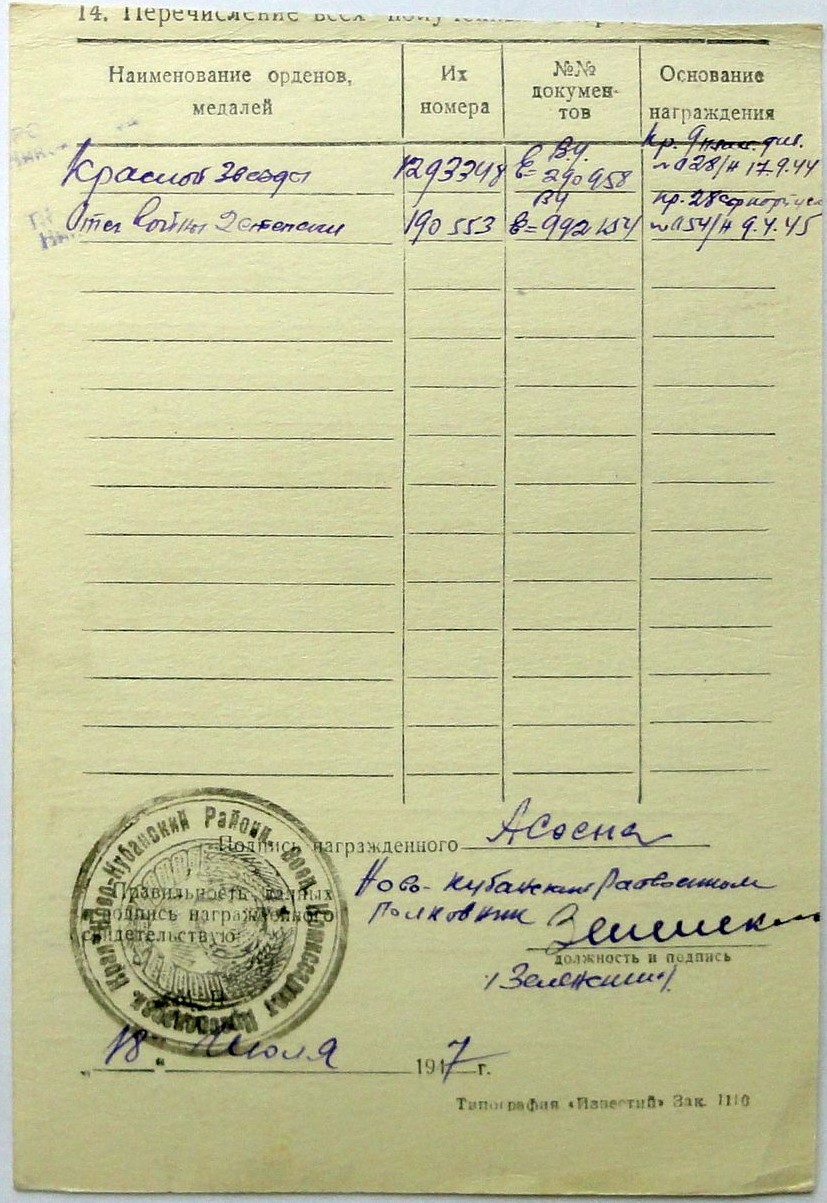 14. Перечисление всех
Наименование орденов, медалей
Их номера
№№ докумен- тов
Основание награждения
Красной Звезды 1293348 В.Ч. Б=290958 Пр. 9 див. №028/н 17.9.44
Отеч Войны 2 степени 190553 ВЧ Б=992154 Пр. 28 №054/н 9.4.45
Подпись награжденного АСосна
Ново-Кубанский Райвоенком
Правильность данных
подпись награжденного
Полковник
свидетельствую:
должность и подпись
"18" Июля 1947 г.
Ново-Кубанский Районн. Воен. Комиссариат Краснодарск. Края
Типография «Известий» Зак. 1110